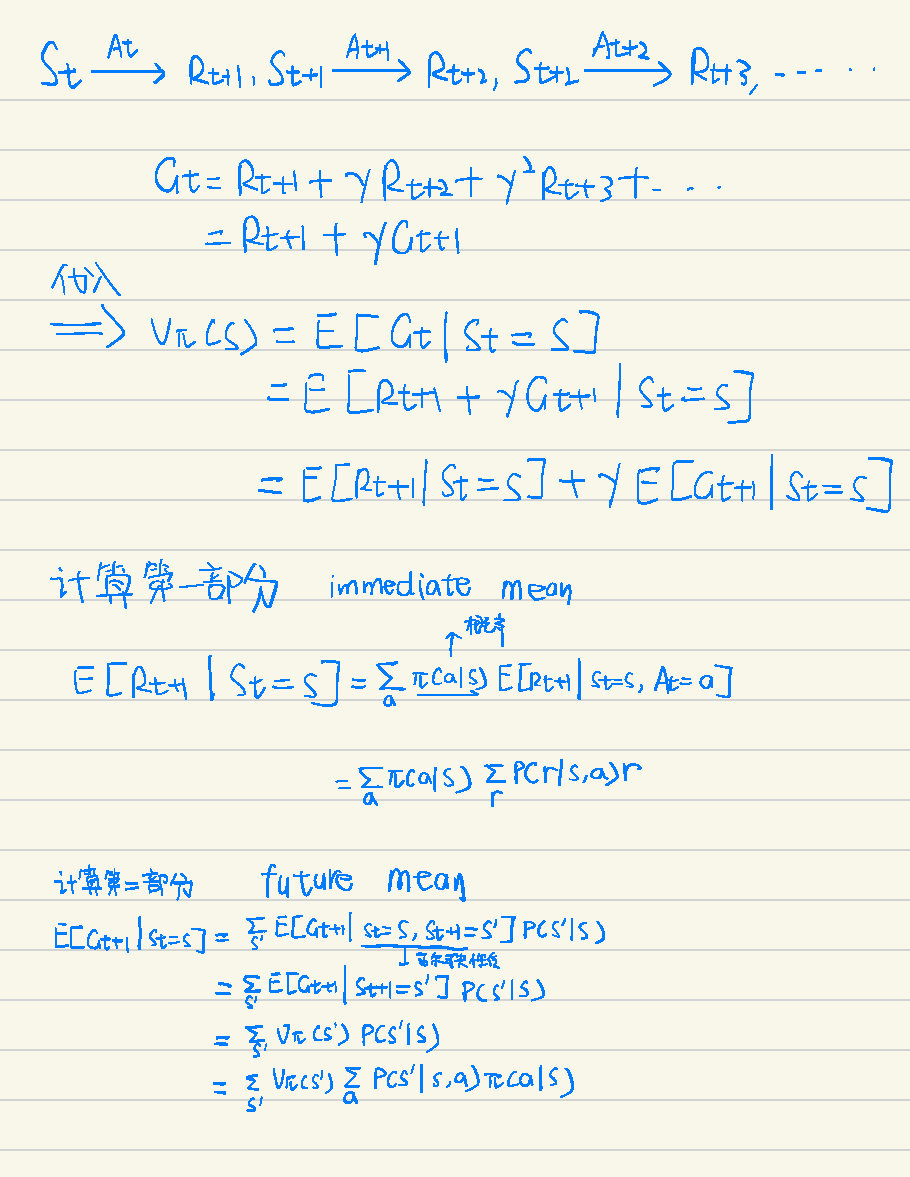 St —At→ Rt+1, St+1 —At+1→ Rt+2, St+2 —At+2→ Rt+3, ------
Gt = Rt+1 + γRt+2 + γ²Rt+3 + ...
= Rt+1 + γGt+1
代入
⇒ Vπ(s) = E[Gt|St=s]
= E[Rt+1 + γGt+1 | St=s]
= E[Rt+1|St=s] + γE[Gt+1|St=s]
计算第一部分 immediate mean
概率
E[Rt+1|St=s] = Σa π(a|s) E[Rt+1|St=s, At=a]
= Σa π(a|s) Σr P(r|s,a)r
计算第二部分 future mean
E[Gt+1|St=s] = Σs' E[Gt+1|St=s, St+1=s']P(s'|s)
↓
= Σs' E[Gt+1|St+1=s'] P(s'|s)
= Σs' Vπ(s') P(s'|s)
= Σs' Vπ(s') Σa P(s'|s,a)π(a|s)